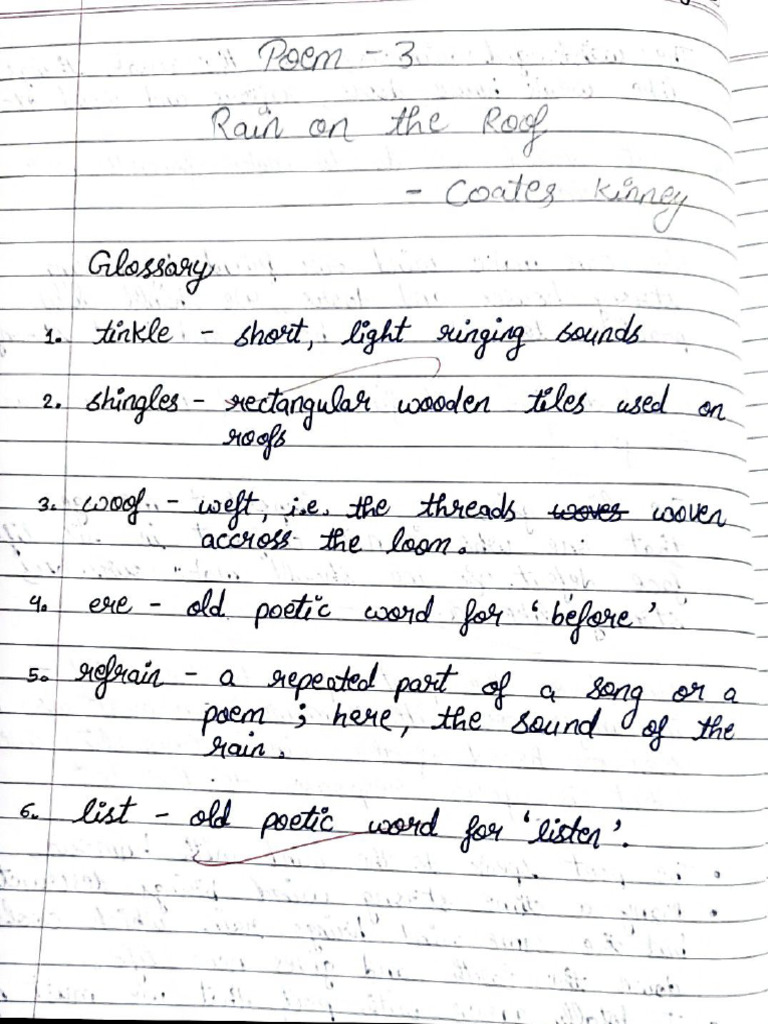 Poem - 3
Rain on the Roof
- Coates Kinney
Glossary
1. tinkle - short, light ringing sounds
2. shingles - rectangular wooden tiles used on
roofs
3. woof - weft, i.e. the threads woves woven
accross the loom.
4. ere - old poetic word for 'before'
5. refrain - a repeated part of a song or a
poem ; here, the sound of the
rain.
6. list - old poetic word for 'listen'.